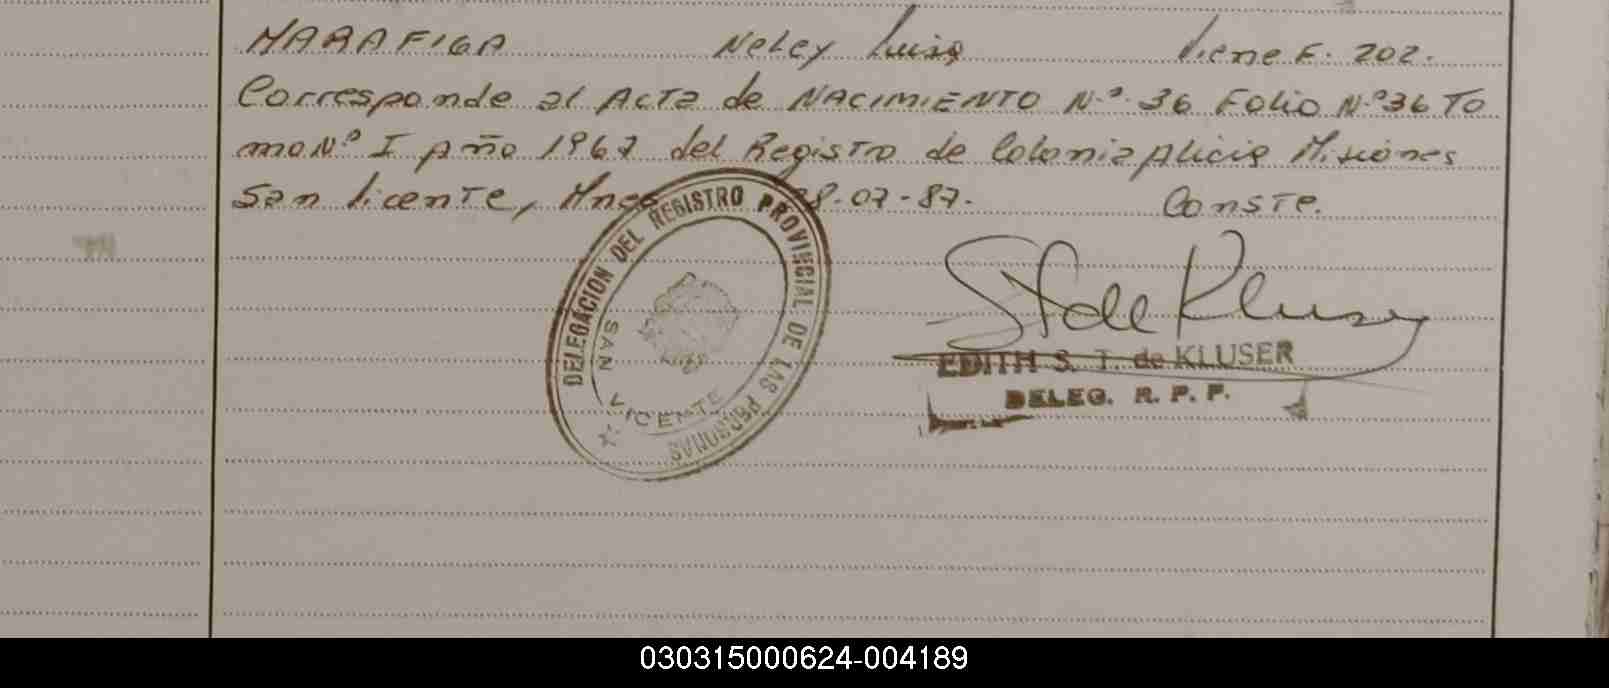 MARAFIGA Nelcy Luisa Viene F. 202.
Corresponde al Acta de NACIMIENTO N.º 36 Folio N.º 36 To
mo N.º I Año 1967 del Registro de Colonia Alicia Misiones
San Vicente, Mnes 28-07-87. Conste.
DELEGACION DEL REGISTRO PROVINCIAL DE LAS PERSONAS
SAN VICENTE
S T de Kluser
EDITH S. T. de KLUSER
DELEG. R. P. P.
030315000624-004189